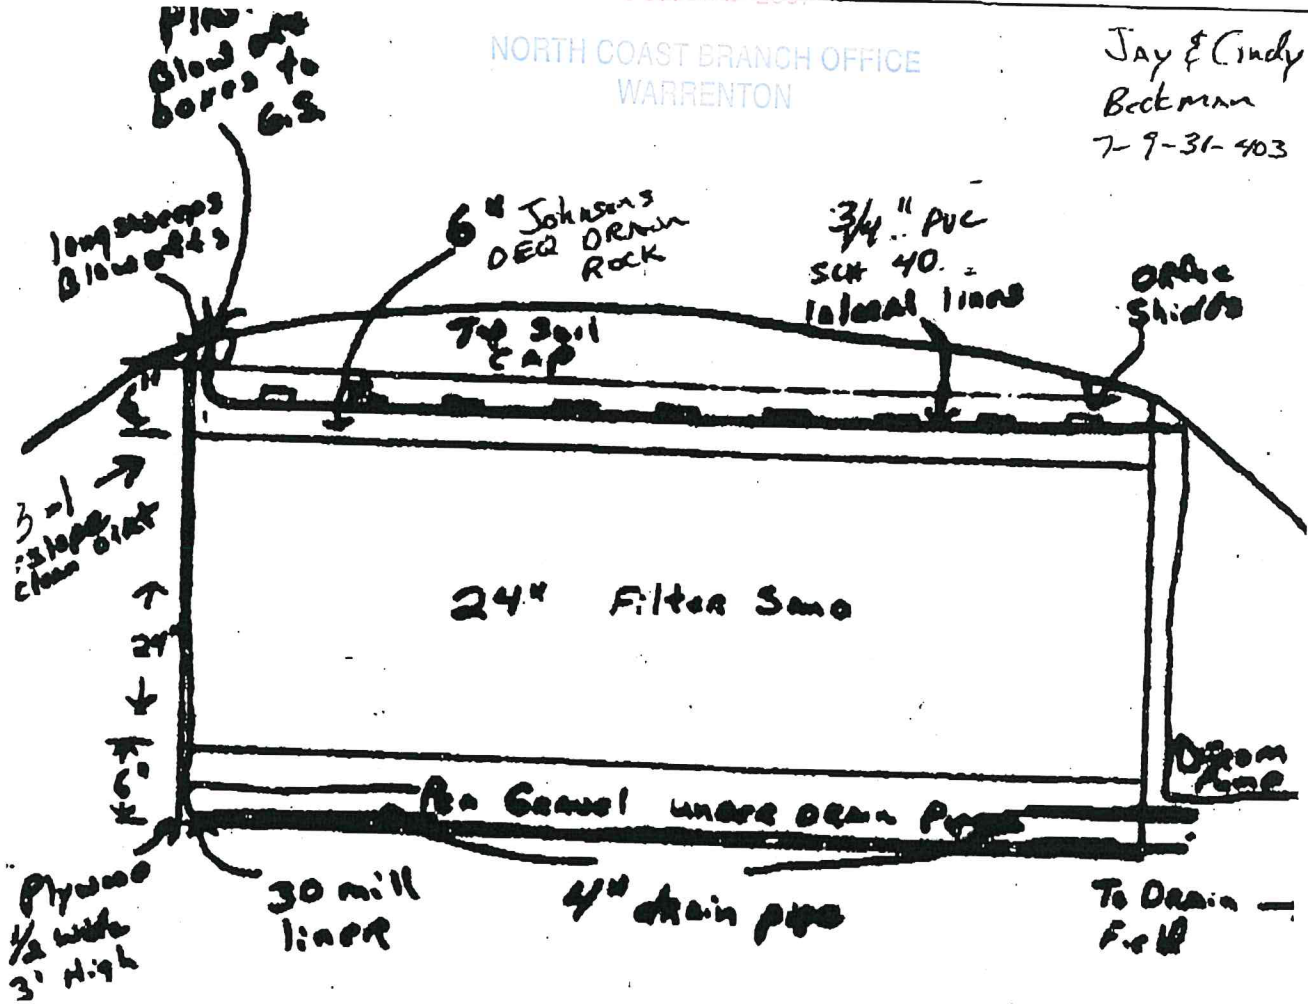 Blow off
boxes to
G.S.
NORTH COAST BRANCH OFFICE
WARRENTON
Jay & Cindy
Beckman
7-9-31-403
long sweeps
Blow offs
6" Johnsons
DEQ DRAIN
ROCK
3/4" PVC
SCH 40
lateral lines
ORface
Shields
Top Soil
CAP
6"
3-1
slope
clean dirt
24"
24" Filter Sand
6"
Pea Gravel under drain
From
Pump
Plywood
1/2 wide
3' High
30 mill
liner
4" drain pipe
To Drain
Field